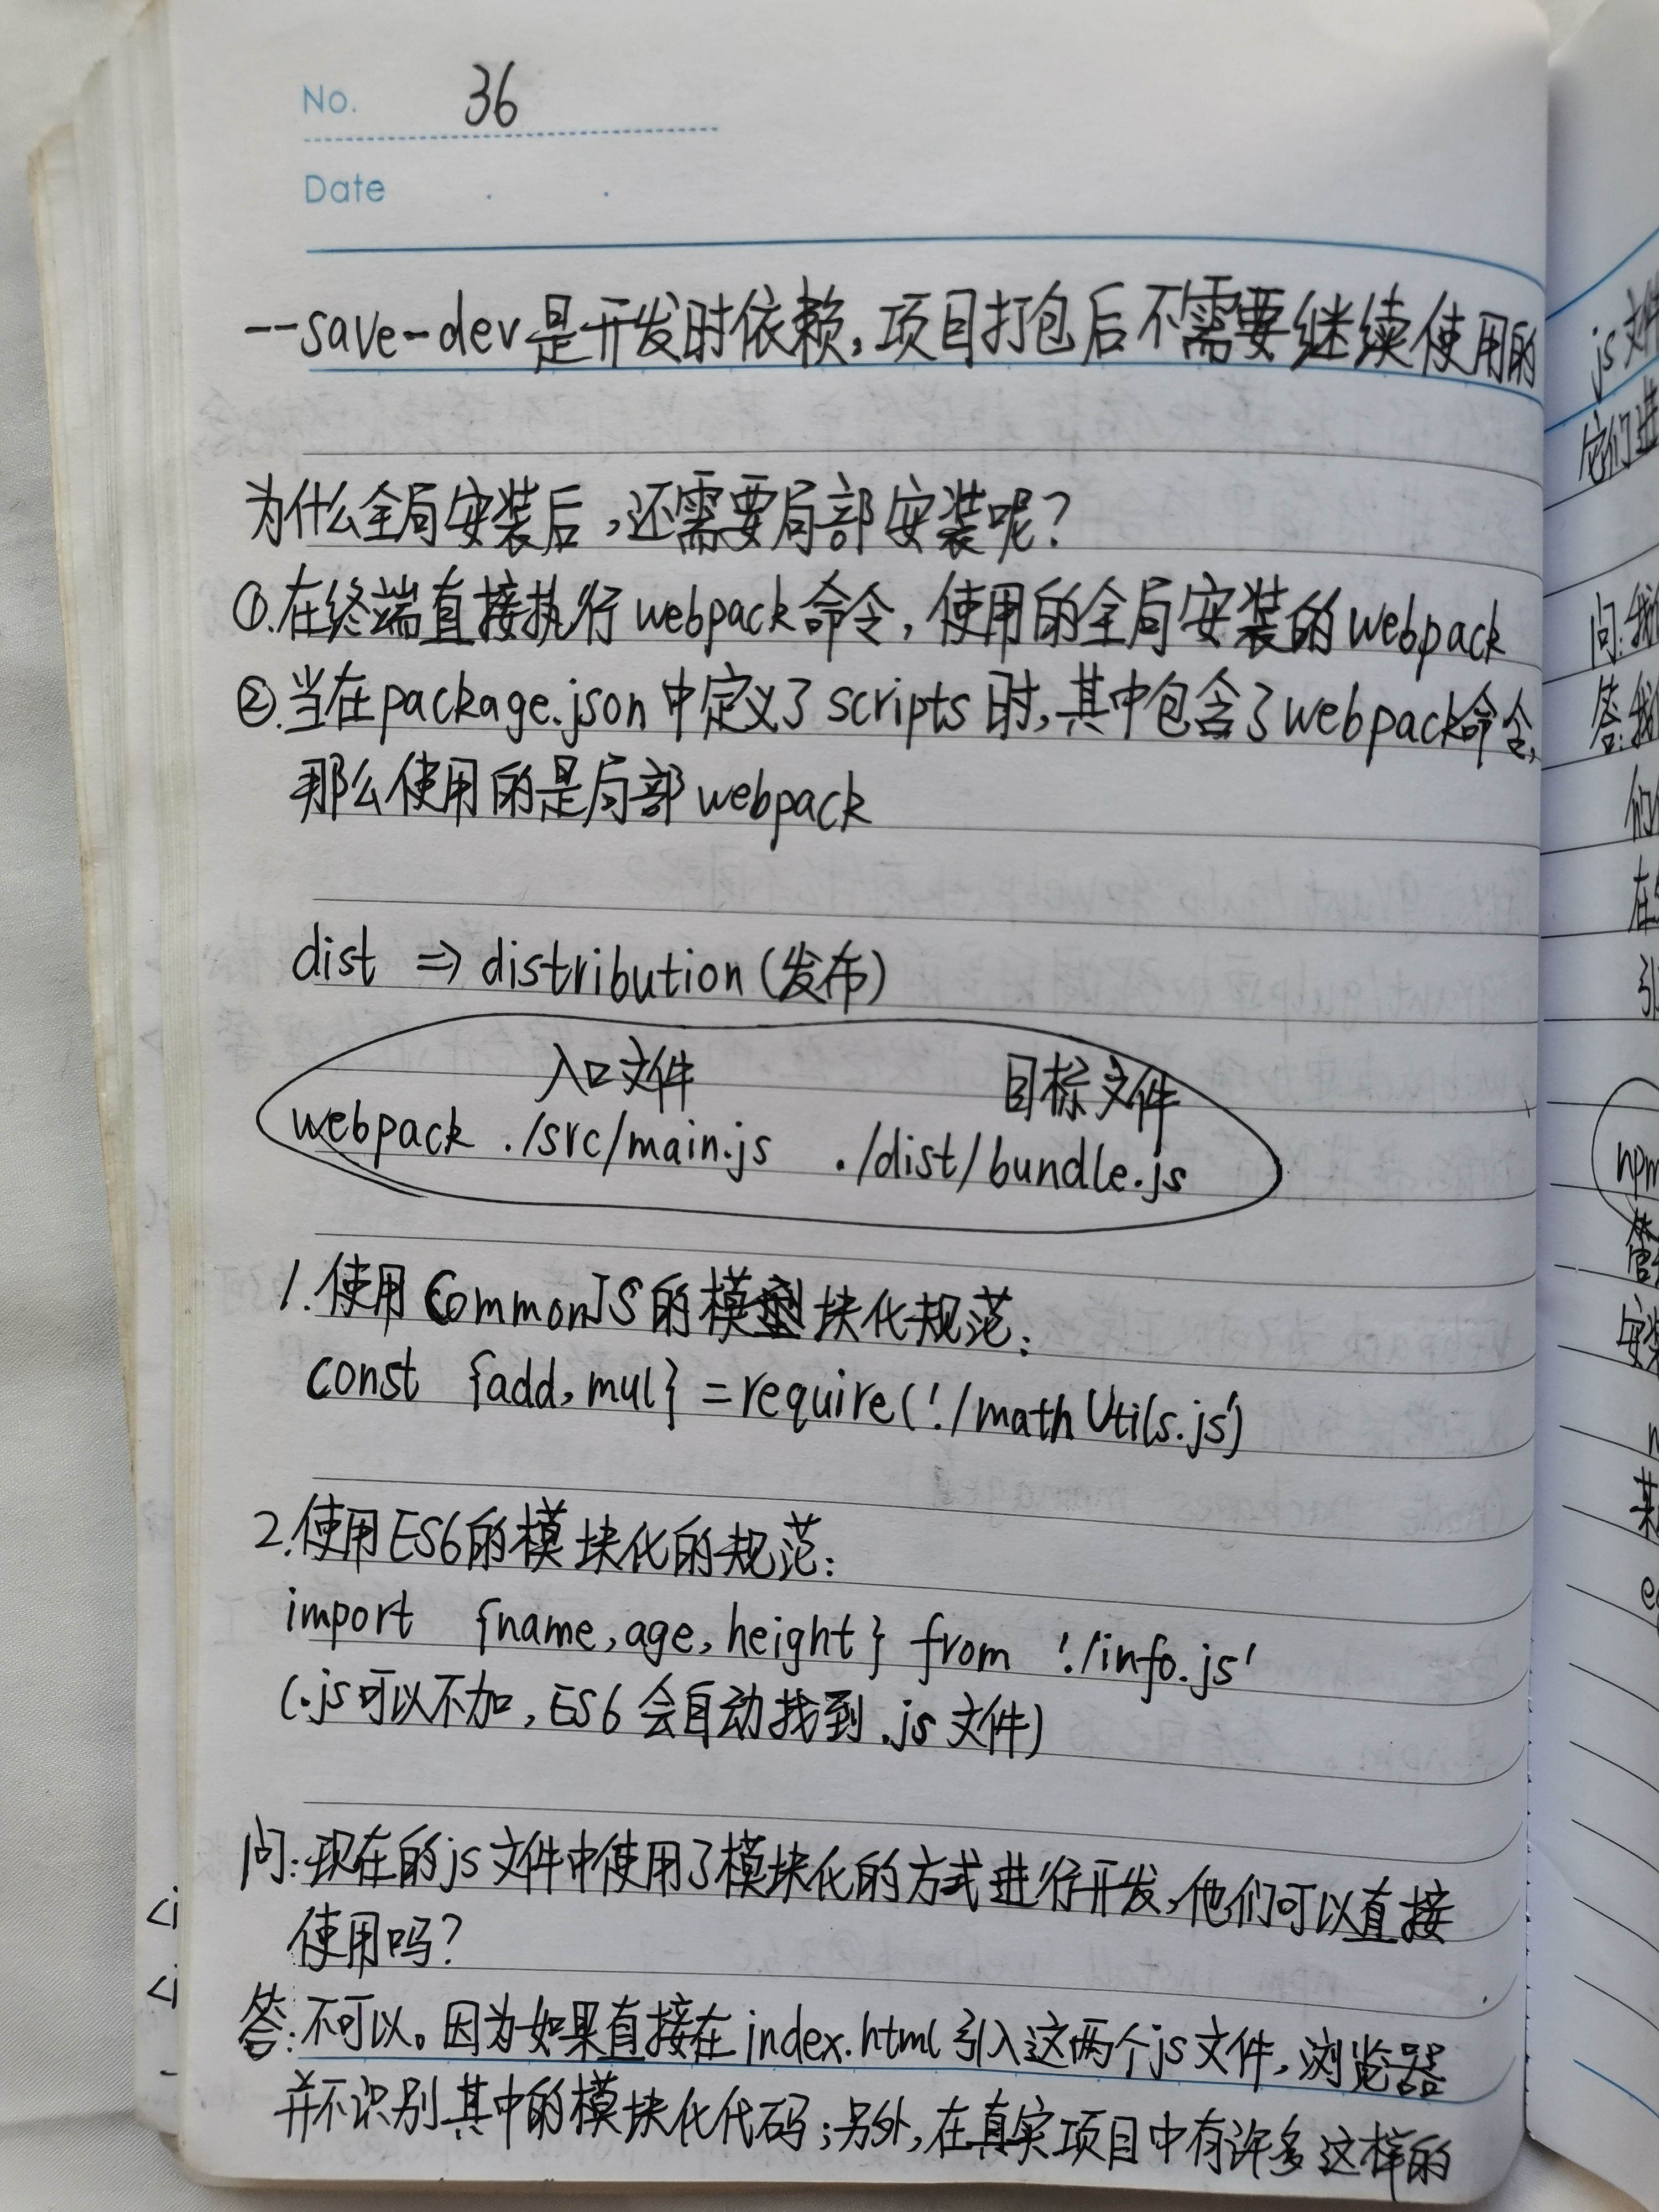 No. 36
Date
--save-dev是开发时依赖,项目打包后不需要继续使用的
为什么全局安装后,还需要局部安装呢?
①.在终端直接执行webpack命令,使用的全局安装的webpack
②.当在package.json中定义了scripts时,其中包含了webpack命令,
那么使用的是局部webpack
dist ⇒ distribution(发布)
入口文件 目标文件
webpack ./src/main.js ./dist/bundle.js
1.使用CommonJS的模块化规范:
const {add,mul} =require('./mathUtils.js')
2.使用ES6的模块化的规范:
import {name,age,height} from './info.js'
(.js可以不加,ES6会自动找到.js文件)
问:现在的js文件中使用了模块化的方式进行开发,他们可以直接
使用吗?
答:不可以。因为如果直接在index.html引入这两个js文件,浏览器
并不识别其中的模块化代码;另外,在真实项目中有许多这样的
js文件
它们进
问:我
答:我
们
在
引
npm
管
安装
<i
<i